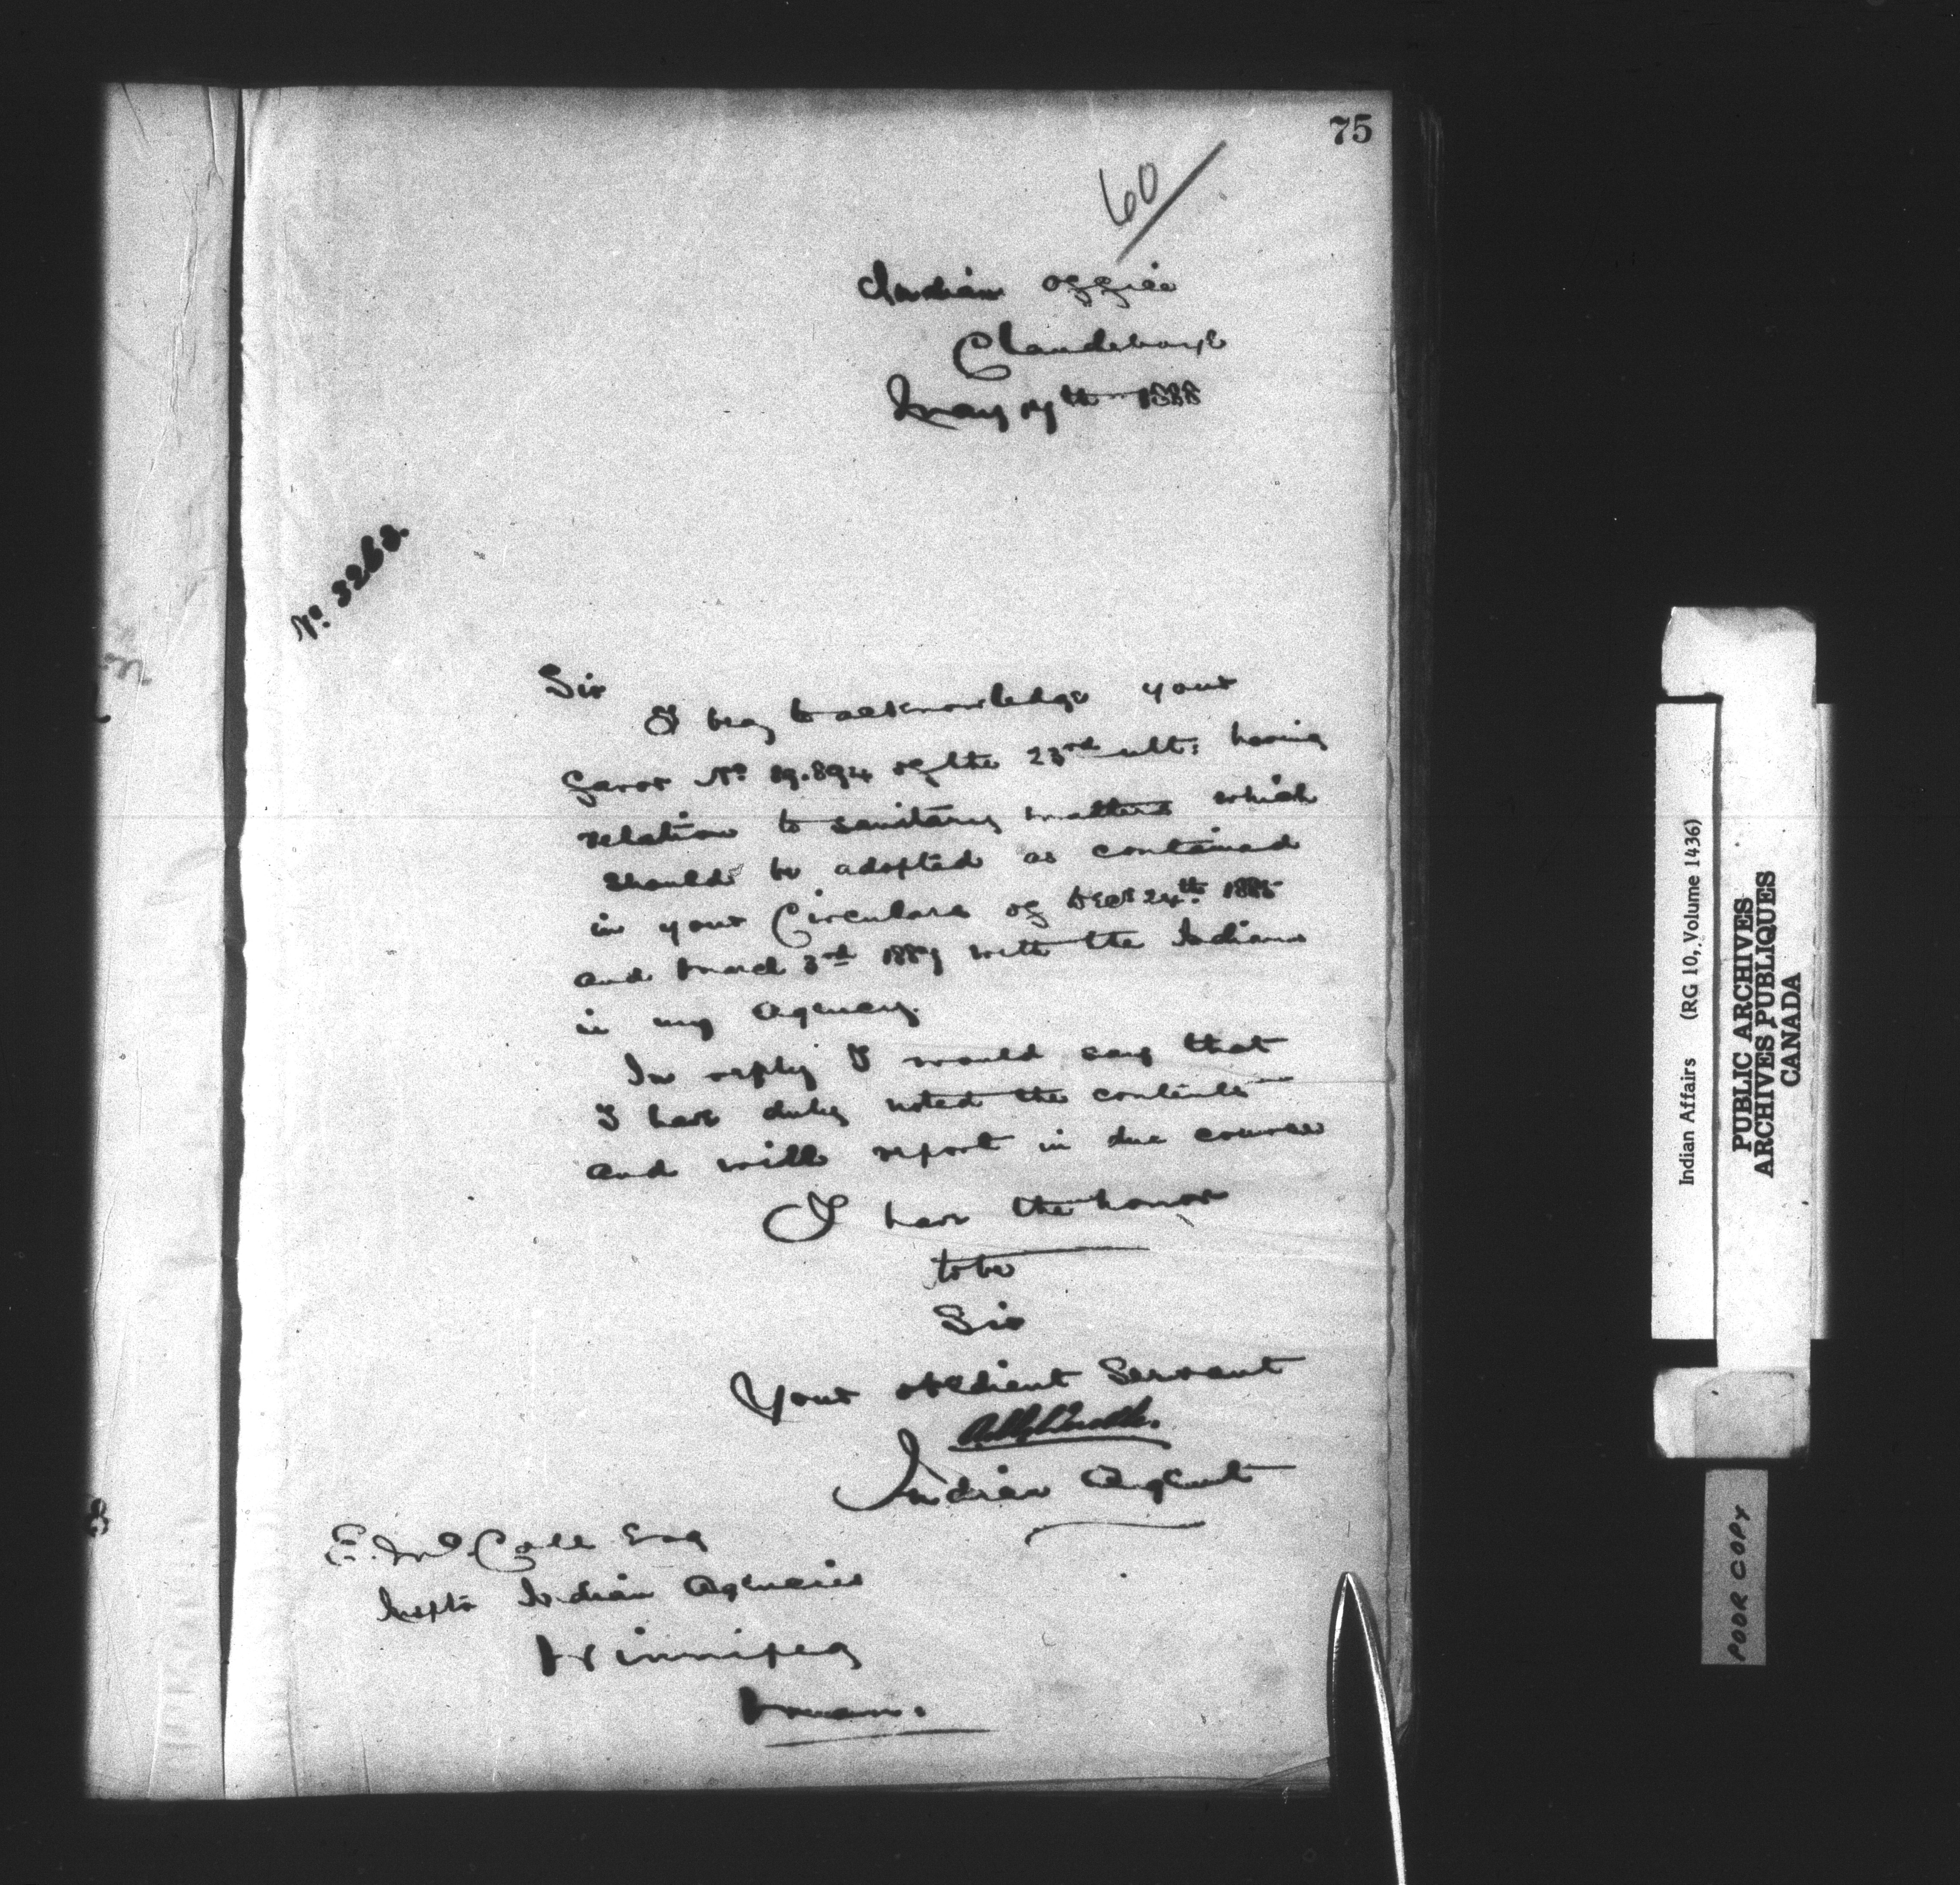 75
60/
Indian Office
Clandeboye
May 17th 1888
No. 3263.
Sir
I beg to acknowledge your
favor No. 89.894 of the 23rd ult: having
relation to sanitary matters which
should be adopted as contained
in your Circulars of Decr 24th. 1885
and March 3rd 1887 with the Indians
in my Agency.
In reply I would say that
I have duly noted the contents
and will report in due course
I have the honor
to be
Sir
Your obedient Servant
Indian Agent
E. McColl Esq
Insptr Indian Agencies
Winnipeg
Man.
Indian Affairs (RG 10, Volume 1436)
PUBLIC ARCHIVES
ARCHIVES PUBLIQUES
CANADA
POOR COPY